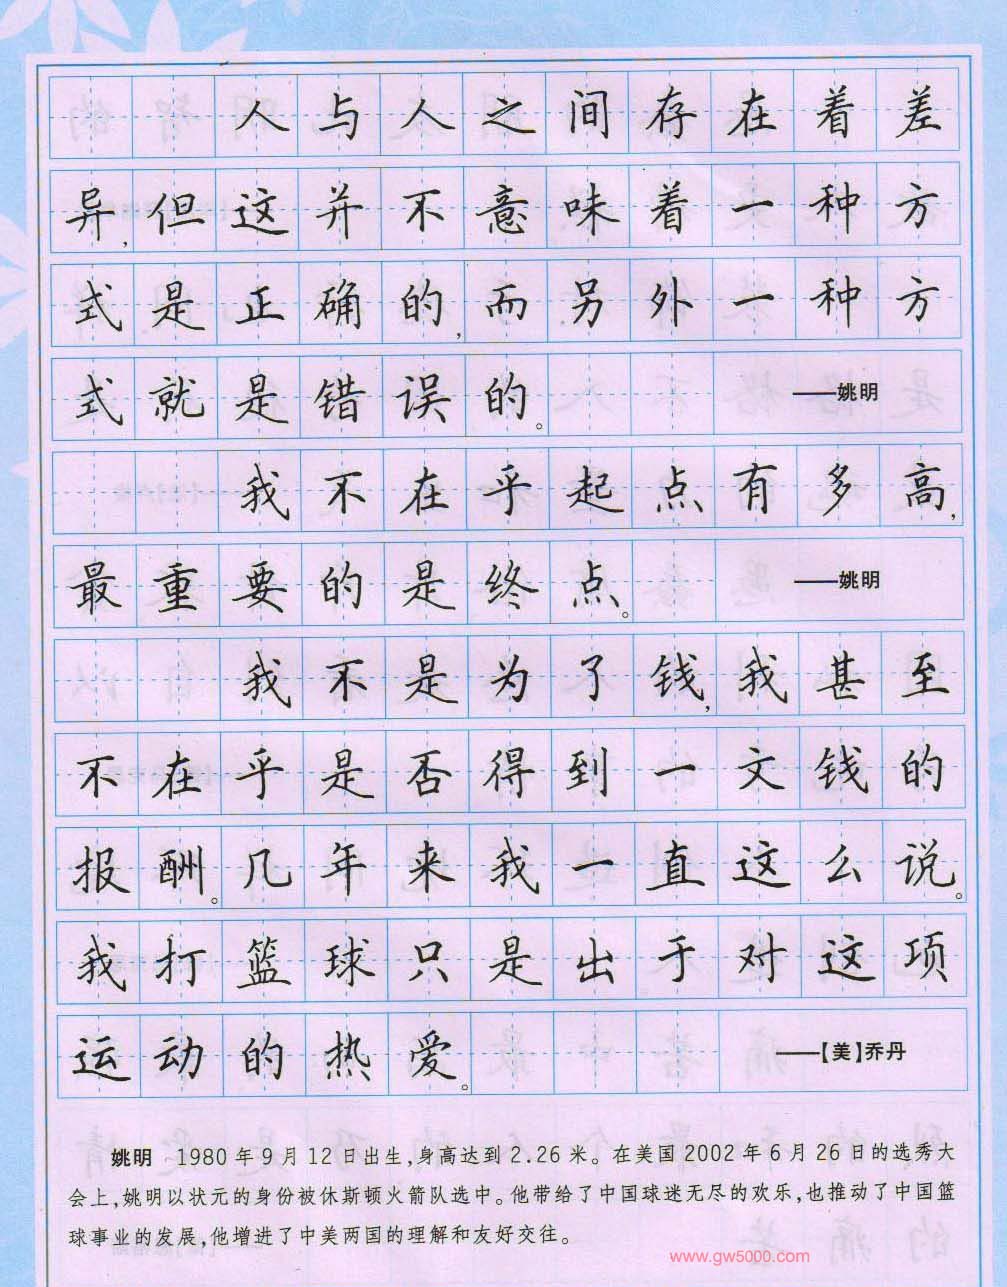 人与人之间存在着差
异,但这并不意味着一种方
式是正确的,而另外一种方
式就是错误的。 ——姚明
我不在乎起点有多高,
最重要的是终点。 ——姚明
我不是为了钱,我甚至
不在乎是否得到一文钱的
报酬。几年来我一直这么说。
我打篮球只是出于对这项
运动的热爱。 ——【美】乔丹
姚明 1980年9月12日出生,身高达到2.26米。在美国2002年6月26日的选秀大
会上,姚明以状元的身份被休斯顿火箭队选中。他带给了中国球迷无尽的欢乐,也推动了中国篮
球事业的发展,他增进了中美两国的理解和友好交往。
www.gw5000.com